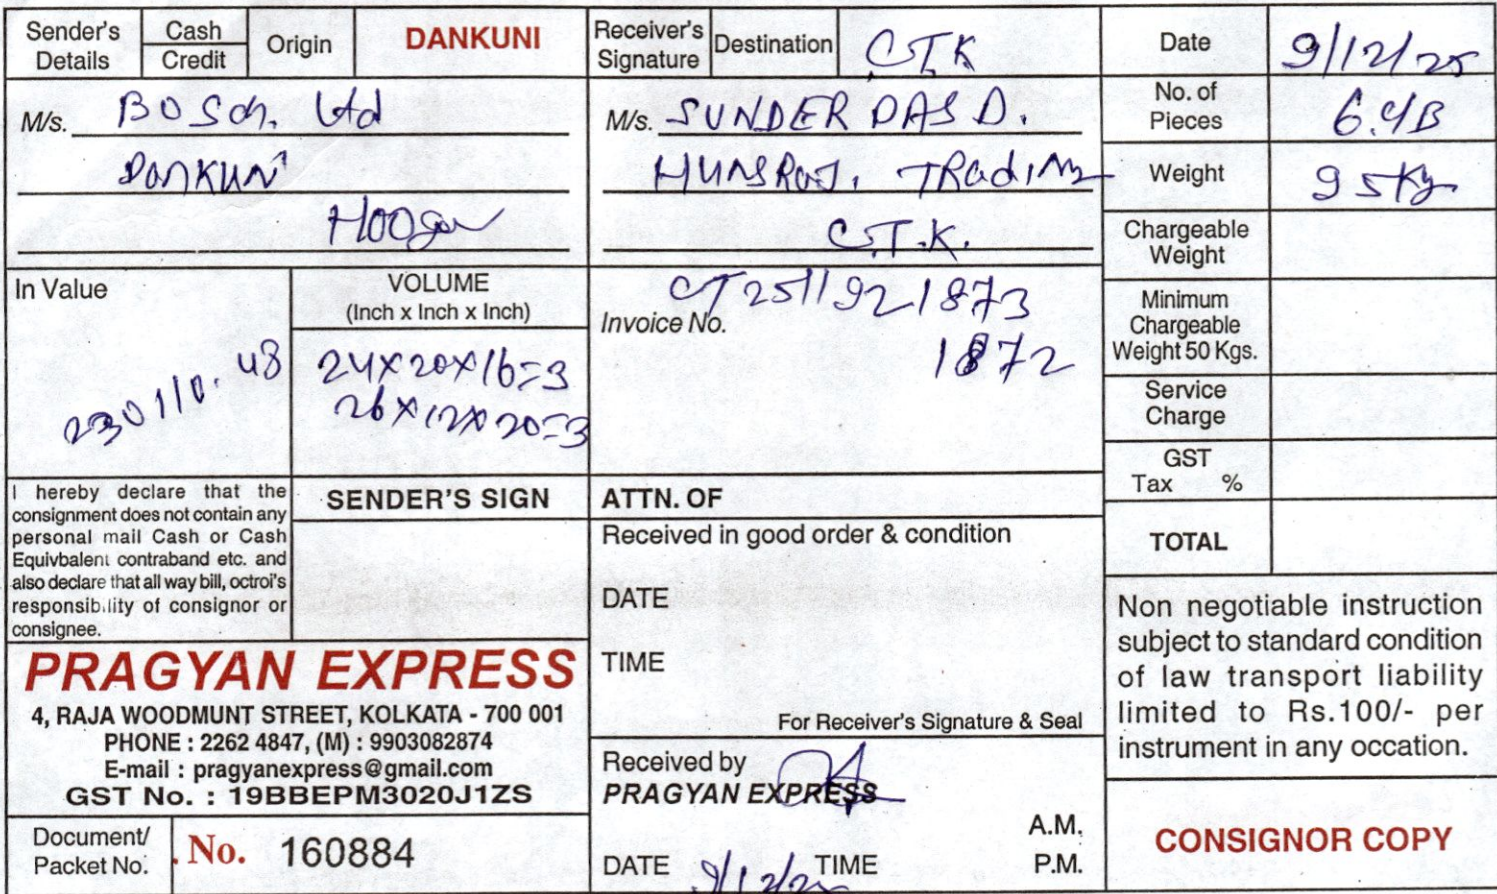 Sender's Details
Cash
Credit
Origin
DANKUNI
Receiver's Signature
Destination
C.T.K
Date
9/12/25
M/s. BOSCH. Ltd
DANKUNI
M/s. SUNDER DAS D.
HUNSRAJ. TRADING
C.T.K.
No. of Pieces
6.4B
Weight
95Kg
Chargeable Weight
Minimum Chargeable Weight 50 Kgs.
Service Charge
GST Tax %
TOTAL
In Value
230110.48
VOLUME
(Inch x Inch x Inch)
24x20x16=3
26x12x20=3
Invoice No.
CT2511921873
1872
I hereby declare that the
consignment does not contain any
personal mail Cash or Cash
Equivbalent contraband etc. and
also declare that all way bill, octroi's
responsibility of consignor or
consignee.
SENDER'S SIGN
ATTN. OF
Received in good order & condition
DATE
TIME
For Receiver's Signature & Seal
Non negotiable instruction
subject to standard condition
of law transport liability
limited to Rs.100/- per
instrument in any occation.
PRAGYAN EXPRESS
4, RAJA WOODMUNT STREET, KOLKATA - 700 001
PHONE : 2262 4847, (M) : 9903082874
E-mail : pragyanexpress@gmail.com
GST No. : 19BBEPM3020J1ZS
Received by
PRAGYAN EXPRESS
DATE 9/12/25 TIME
A.M.
P.M.
Document/
Packet No.
No. 160884
CONSIGNOR COPY